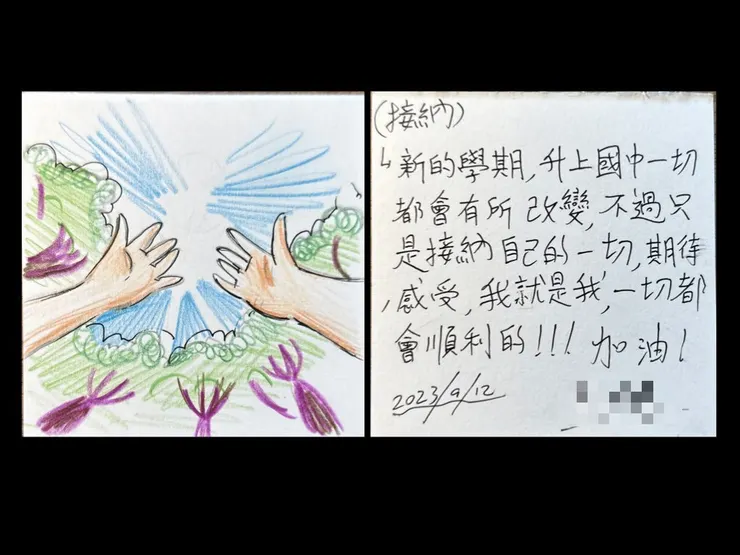 (接納)
↳新的學期,升上國中一切
都會有所改變,不過只
是接納自己的一切,期待
,感受,我就是我,一切都
會順利的!!! 加油!
2023/9/12